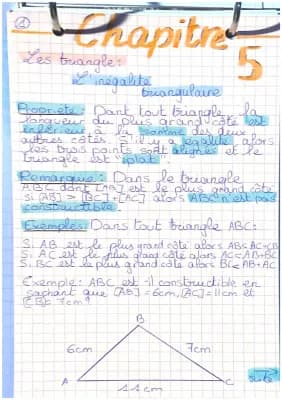 1
Chapitre
5
Les triangle:
L'inégalité
triangulaire
Propriété: Dant tout triangle, la
longueur du plus grand côté est
inférieur à la somme des deux
autres côtés. S'il y a égalité alors
les trois points sont alignés et le
triangle est "plat".
Remarque: Dans le triangle
ABC dont [AB] est le plus grand côté
si [AB] > [BC] + [AC] alors ABC n'est pas
constructible.
Exemples: Dans tout triangle ABC:
Si AB est le plus grand côté alors AB≤AC+CB
Si AC est le plus grand côté alors AC≤AB+BC
Si BC est le plus grand côté alors BC≤AB+AC
Exemple: ABC est-il constructible en
sachant que [AB]=6cm, [AC]=11cm et
[CB]=7cm?
B
6cm
7cm
A
C
11cm